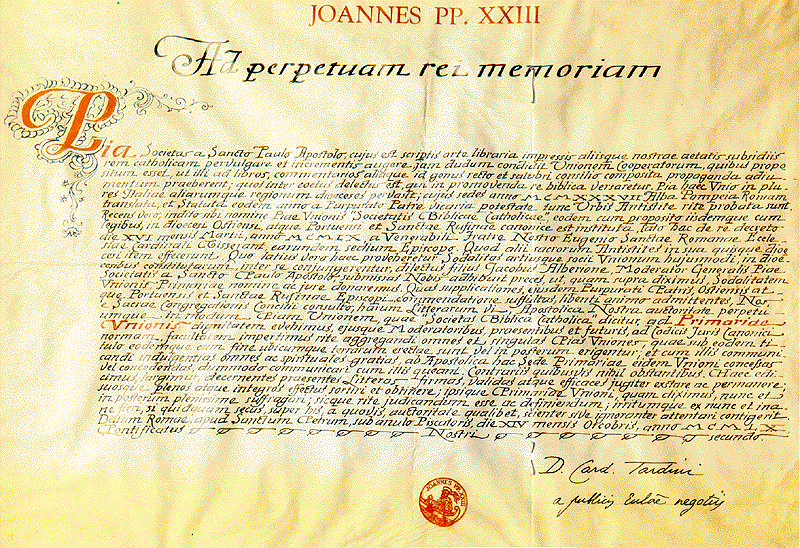 JOANNES PP. XXIII
Ad perpetuam rei memoriam
Pia Societas a Sancto Paulo Apostolo, cujus est scriptis arte libraria impressis aliisque nostrae aetatis subsidiis
rem catholicam pervulgare et incrementis augere, jam dudum condidit Unionem Cooperatorum, quibus propo
situm esset, ut illi ad libros, commentarios aliaque id genus recto et salubri consilio composita propaganda adju
mentum praeberent; quos inter coetus delectus est, qui in promovenda re biblica versaretur. Pia haec Unio in plu
res Italiae aliarumque regionum dioeceses pervenit; cujus sedes anno MCMXXXVII Alba Pompeia Romam
translata, et Statuta eodem anno a Purpurato Patre, vicaria potestate tunc Urbis Antistite, rite probata sunt.
Recens vero, indito sibi nomine Piae Unionis "Societatis Biblicae Catholicae", eodem cum proposito iisdemque cum
legibus, in dioecesi Ostiensi, atque Portuensi et Sanctae Rufinae canonice est instituta, lato hac de re decreto
die XVI mensis Martii, anno MCMLIX, a Venerabili Fratre Nostro Eugenio Sanctae Romanae Eccle
siae Cardinali Tisserant, earundem sedium Episcopo. Quod alii sacrorum Antistites in sua quisque dioe
cesi item effecerunt. Quo latius vero haec proveheretur Sodalitas atque socii Unionum hujusmodi, in dioe
cesibus constitutarum, inter se conjungerentur, dilectus filius Jacobus Alberione, Moderator Generalis Piae
Societatis a Sancto Paulo Apostolo, submissas Nobis adhibuit preces, ut, quam supra diximus, Sodalitatem
Unionis Primariae nomine ac jure donaremus. Quas supplicationes, ejusdem Purpurati Patris, Ostiensis at
que Portuensis et Sanctae Rufinae Episcopi, commendatione suffultas, libenti animo admittentes, Nos,
e Sacrae Congregationis Concilii consulto, harum Litterarum vi, Apostolica Nostra auctoritate, perpetu
umque in modum Piam Unionem, quae "Societas Biblica Catholica" dicitur, ad Primariae
Unionis dignitatem evehimus, ejusque Moderatoribus, praesentibus et futuris, ad Codicis Juris Canonici
normam, facultatem impertimus rite aggregandi omnes et singulas Pias Uniones, quae sub eodem ti
tulo eodemque cum fine ubicumque terrarum erectae sunt vel in posterum erigentur; et cum illis communi
candi indulgentias omnes ac spirituales gratias, ab Apostolica hac Sede Primariae eidem Unioni concessas
vel concedendas, dummodo communicari cum illis queant. Contrariis quibusvis nihil obstantibus. Haec edi
cimus, largimur, decernentes praesentes Litteras firmas, validas atque efficaces jugiter exstare ac permanere;
suosque plenos atque integros effectus sortiri et obtinere; ipsique Primariae Unioni, quam diximus, nunc et
in posterum plenissime suffragari; sicque rite judicandum esse ac definiendum; irritumque ex nunc et ina
ne fieri, si quidquam secus, super his, a quovis, auctoritate qualibet, scienter sive ignoranter attentari contigerit.
Datum Romae, apud Sanctum Petrum, sub anulo Piscatoris, die XIV mensis Octobris, anno MCMLIX
Pontificatus Nostri secundo
D. Card. Tardini
a publicis Ecclesiae negotiis
JOANNES PP. XXIII